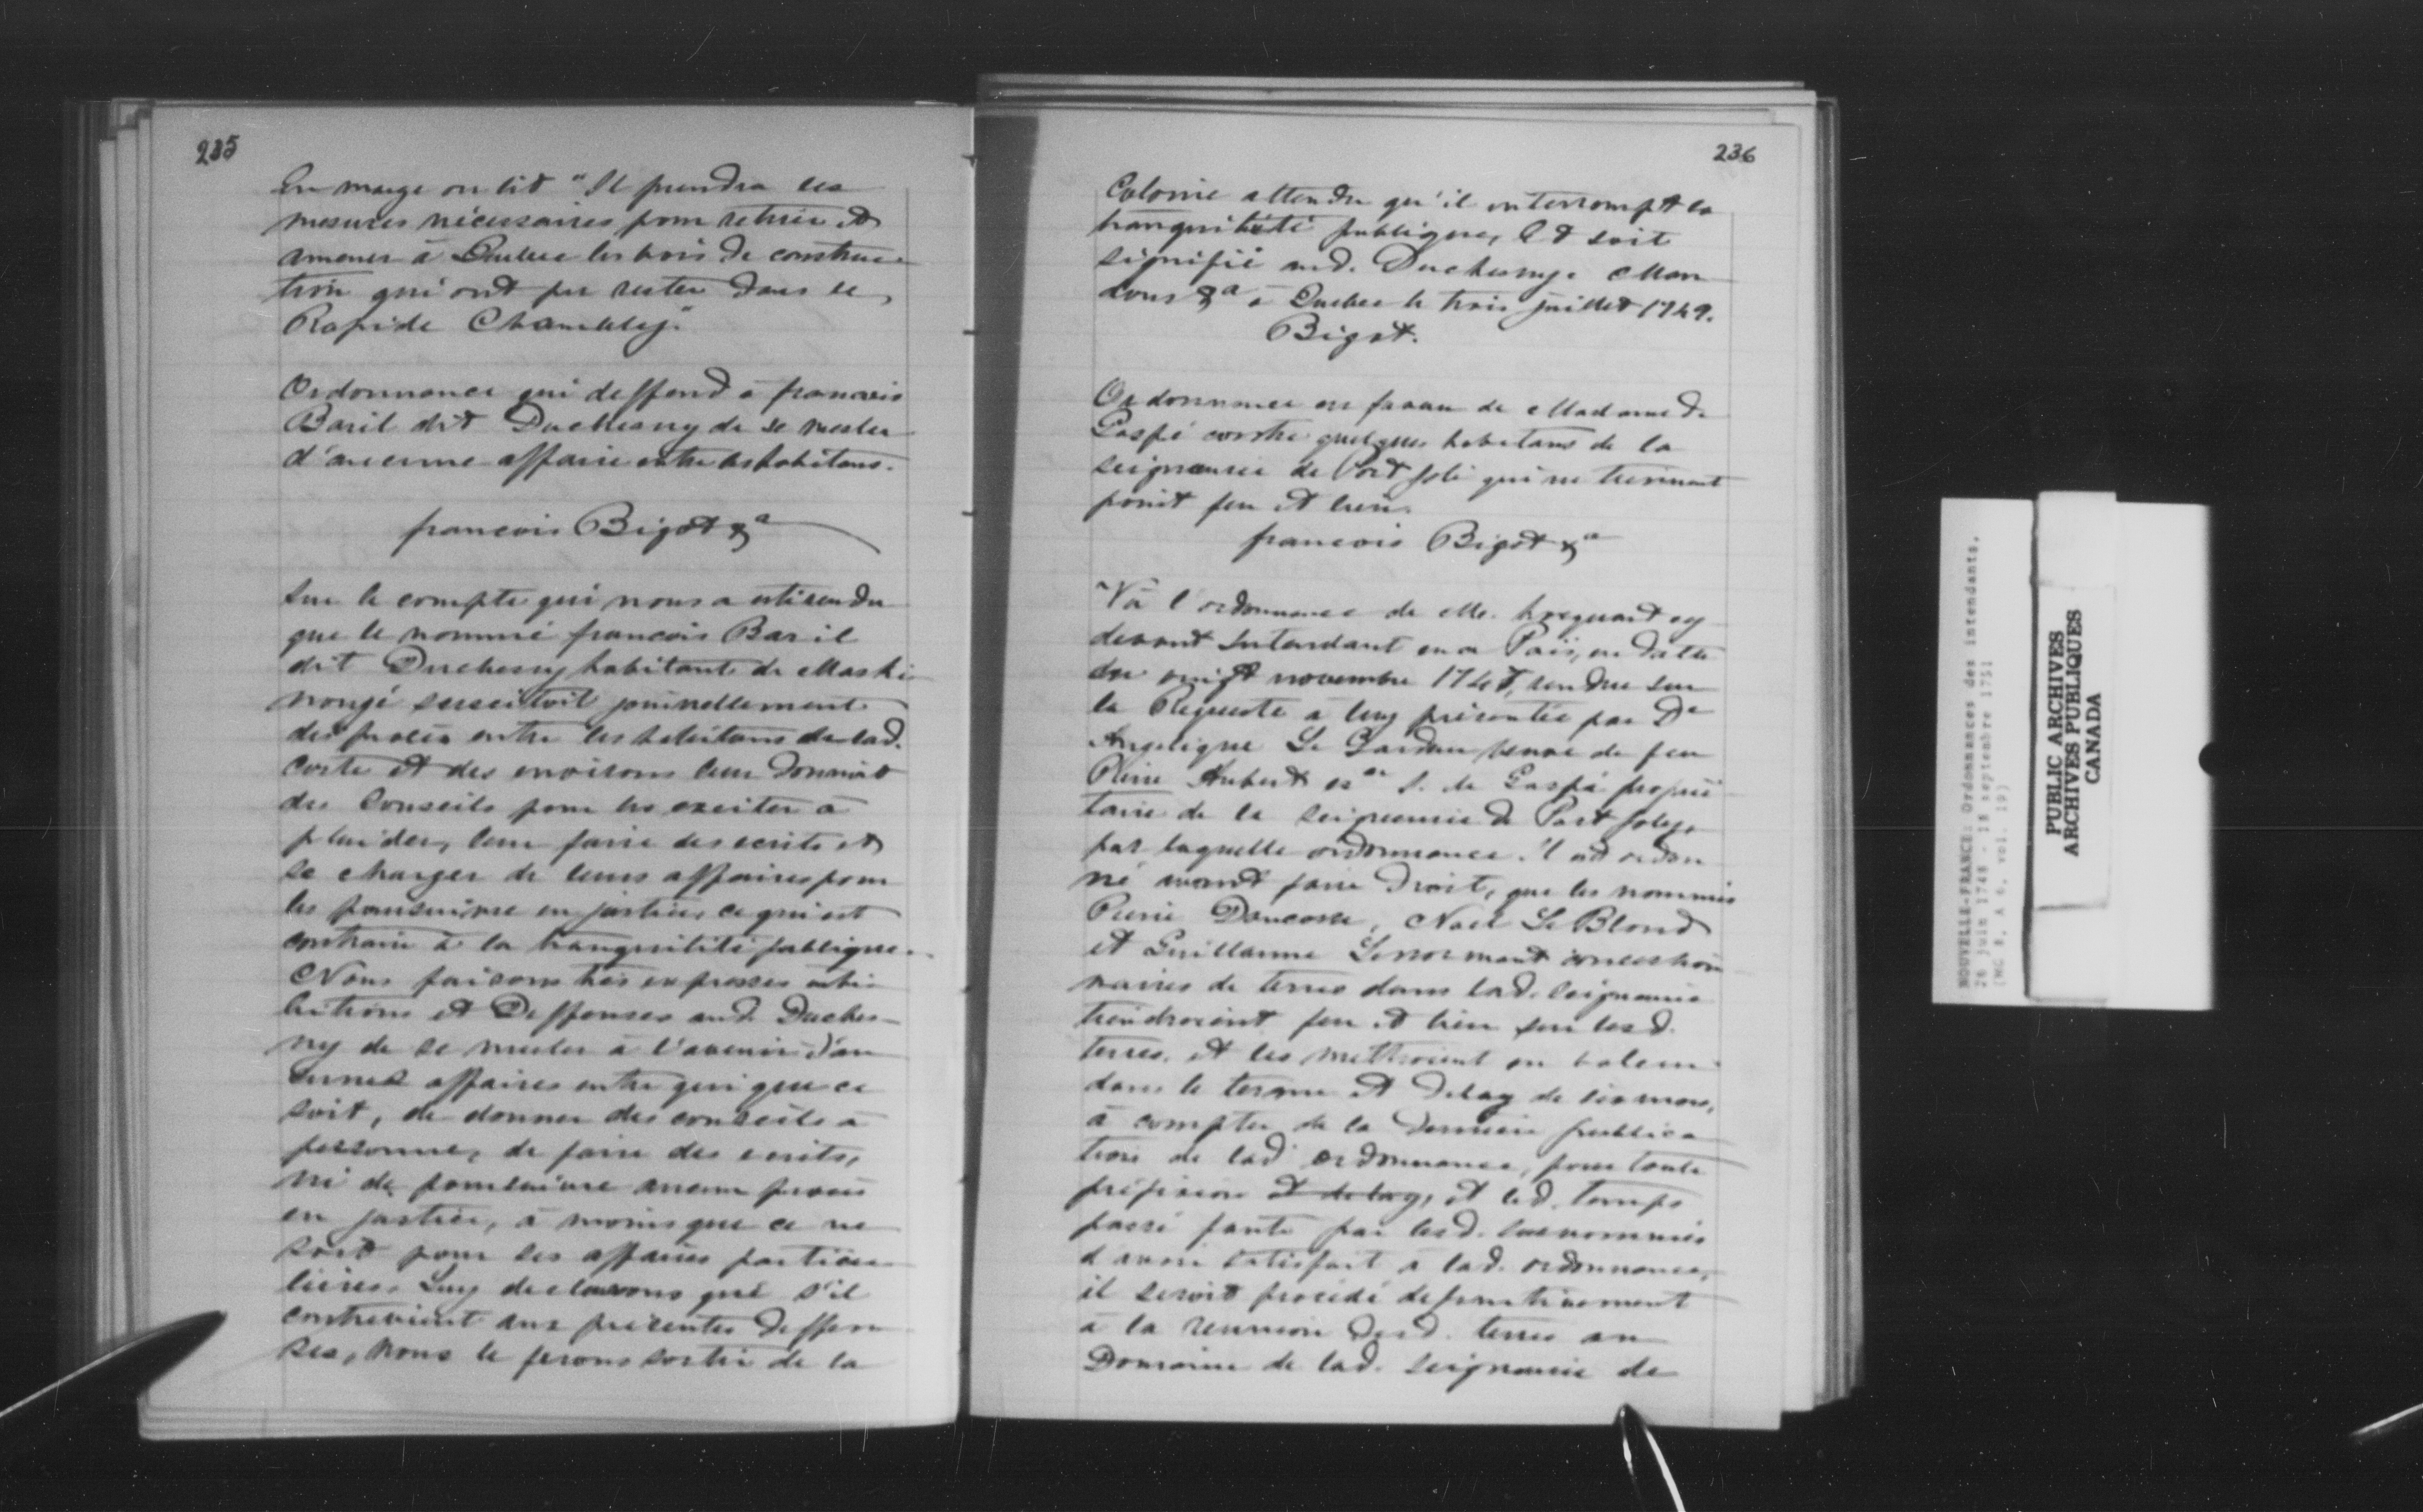 235
En marge on lit "Il prendra les
mesures nécessaires pour retirer et
amener à Quebec les bois de construc-
tion qui ont pu rester dans le
Rapide Chambly."
Ordonnance qui deffend à francois
Baril dit Duchesny de se mesler
d'aucune affaire entre les habitans.
francois Bigot &a
Sur le compte qui nous a esté rendu
que le nommé francois Baril
dit Duchesny habitant de Maski-
nongé suscitoit journellement
des procès entre les habitans de lad.
Coste et des environs leur donnoit
des Conseils pour les exciter à
plaider, leur faire des ecrits et
se charger de leurs affaires pour
les poursuivre en justice, ce qui est
contraire à la tranquilité publique.
Nous faisons très expresses inhi-
bitions et Deffenses aud. Duches-
ny de se mesler à l'avenir d'au
cunes affaires entre qui que ce
soit, de donner des conseils à
personne, de faire des ecrits,
ni de poursuivre aucun procès
en justice, à moins que ce ne
soit pour ses affaires particu-
lieres. Luy declarons que s'il
contrevient aux présentes deffen-
ses, nous le ferons sortir de la
236
Colonie attendu qu'il interrompt la
tranquilité publique, Et soit
signifié aud. Duchesny. Man-
dons &a à Quebec le trois juillet 1749.
Bigot.
Ordonnance en faveur de Madame de
Gaspé contre quelques habitans de la
seigneurie de Port Joli qui ne tiennent
point feu et lieu.
francois Bigot &a
"Vû l'ordonnance de M. hocquart cy
devant Intendant en ce Païs, en datte
du vingt novembre 1747, rendue sur
la Requeste à luy présentée par De
Angelique Le Gardeur veuve de feu
Pierre Aubert es.er S. de Gaspé proprié-
taire de la seigneurie de Port Joly,
par laquelle ordonnance il est ordon
né avant faire droit, que les nommés
Pierre Dancosse, Noel Le Blond
et Guillaume Lenormant concession
naires de terres dans lad. seigneurie
tiendroient feu et lieu sur lesd.
terres, et les mettroient en valeur
dans le terme et delay de six mois,
à compter de la derniere publica
tion de lad. ordonnance, pour toute
préfixion et delay, et led. temps
passé faute par lesd. susnommés
d'avoir satisfait à lad. ordonnance,
il seroit procédé definitivement
à la reunion desd. terres au
Domaine de lad. seigneurie de
NOUVELLE-FRANCE: Ordonnances des intendants,
26 juin 1748 - 18 septembre 1751
(MG 8, A 6, vol. 19)
PUBLIC ARCHIVES
ARCHIVES PUBLIQUES
CANADA